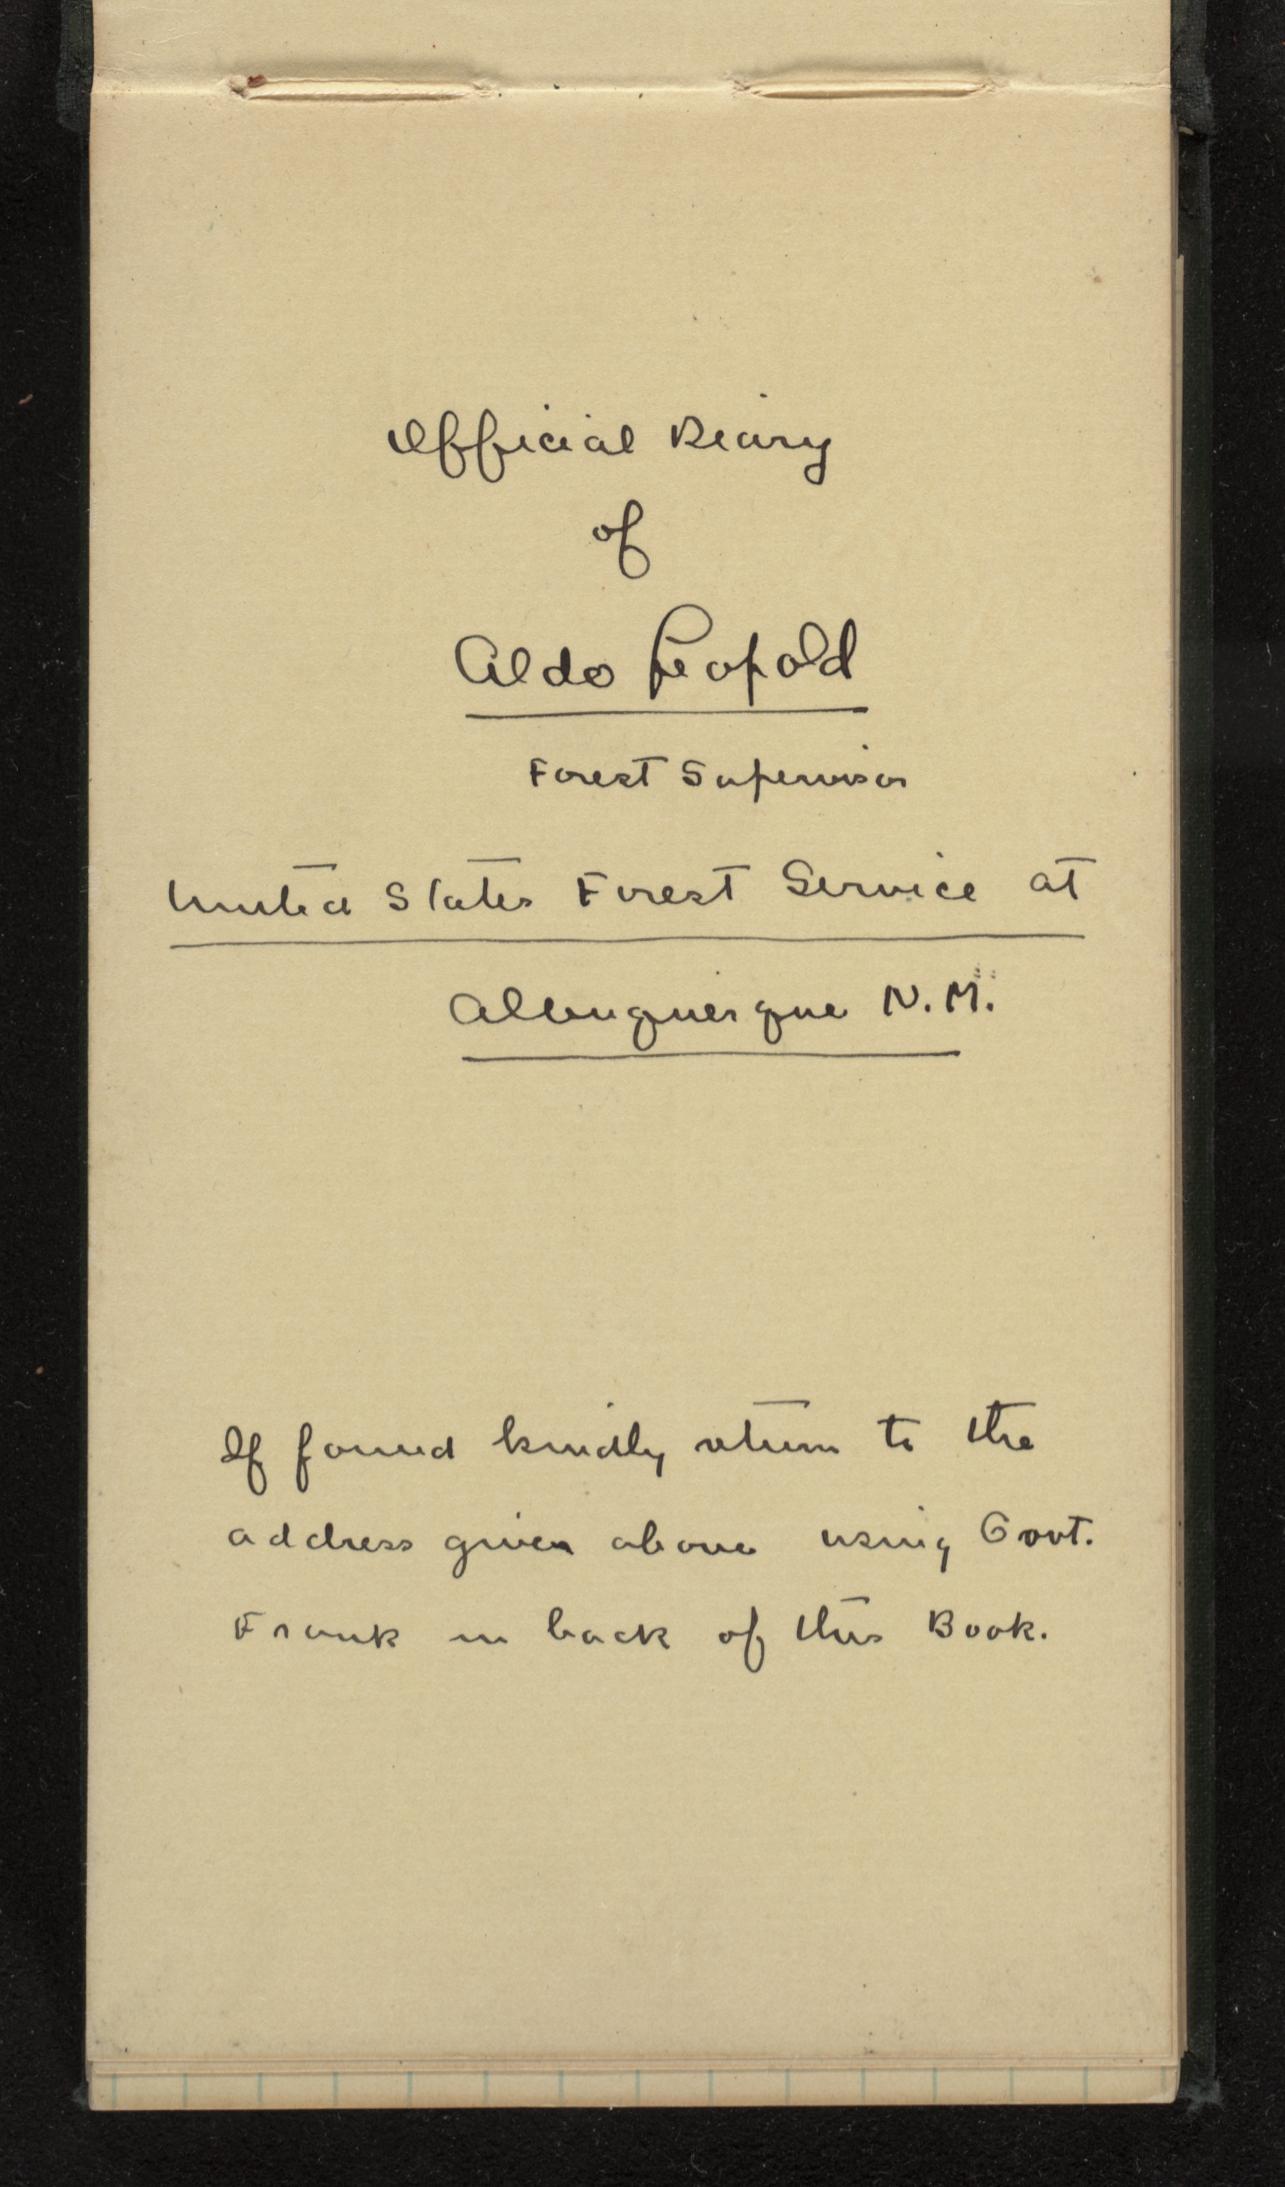 Official Diary
of
Aldo Leopold
Forest Supervisor
United States Forest Service at
Albuquerque N.M.
If found kindly return to the
address given above using Govt.
Frank in back of this Book.